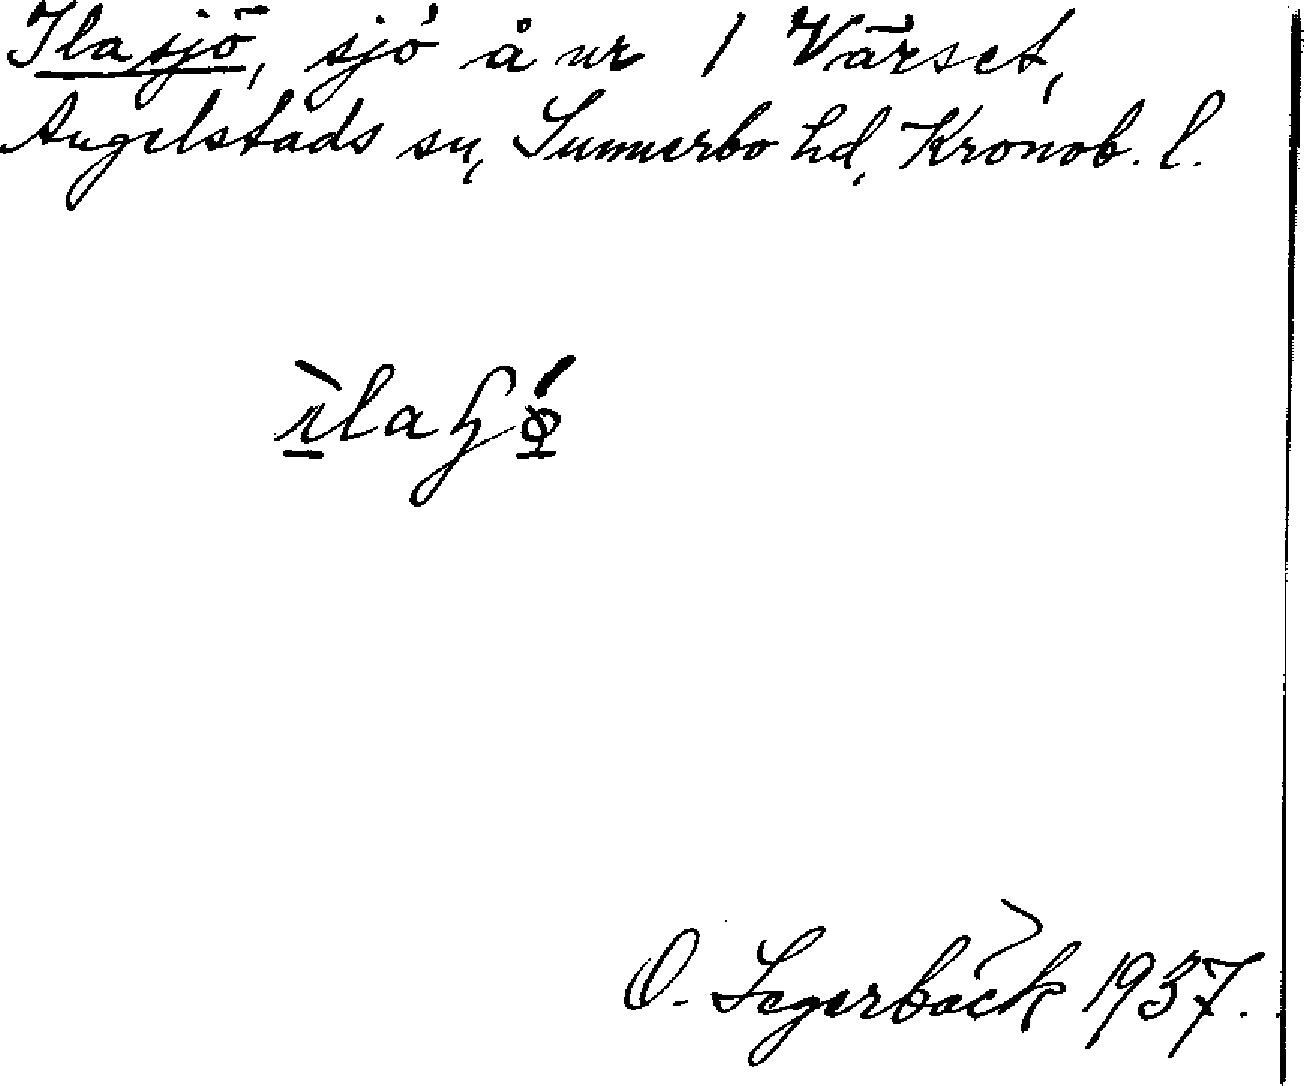 Ilasjö, sjö å nr 1 Värset,
Angelstads sn, Sunnerbo hd, Kronob. l.
ìlaɧǿ
O. Segerbäck 1937.